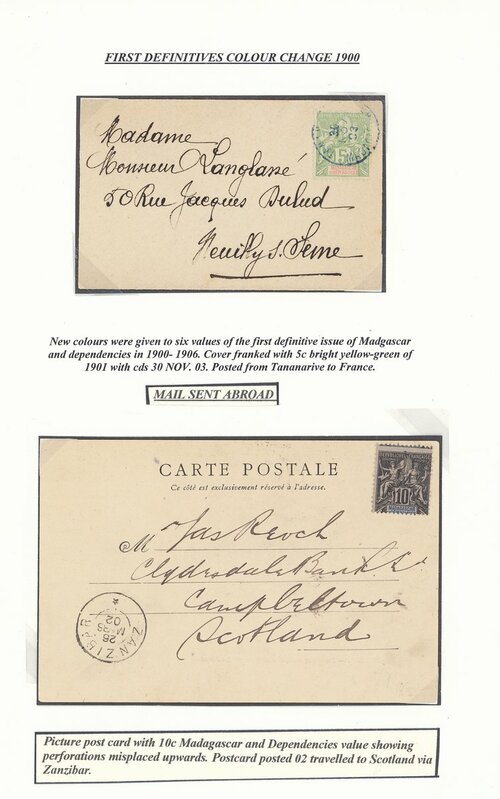 FIRST DEFINITIVES COLOUR CHANGE 1900
Madame
Monsieur Langlassé
50 Rue Jacques Dulud
Neuilly s. Seine
5
New colours were given to six values of the first definitive issue of Madgascar
and dependencies in 1900- 1906. Cover franked with 5c bright yellow-green of
1901 with cds 30 NOV. 03. Posted from Tananarive to France.
MAIL SENT ABROAD
CARTE POSTALE
Ce côté est exclusivement réservé à l'adresse.
10
Mr Jas Reoch
Clydesdale Bank Ld
Campbeltown
Scotland
ZANZIBAR
28
02
Picture post card with 10c Madagascar and Dependencies value showing
perforations misplaced upwards. Postcard posted 02 travelled to Scotland via
Zanzibar.